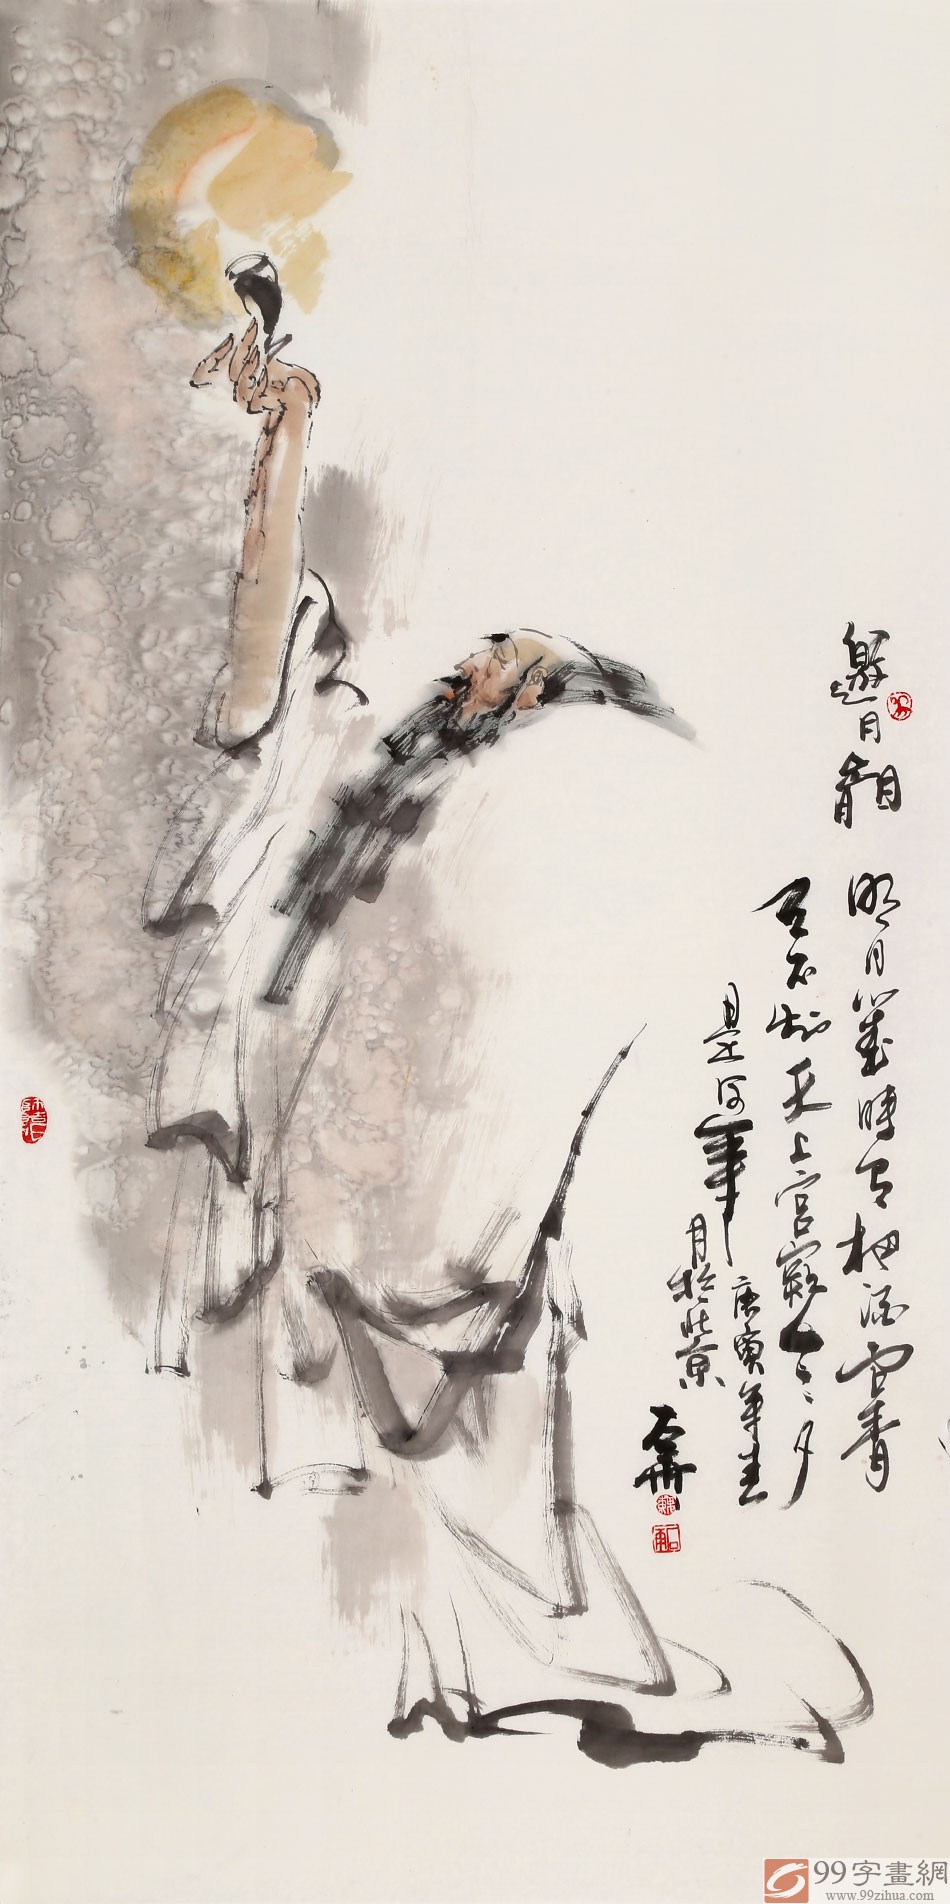 邀月
明月幾時有把酒問青
天不知天上宮闕今夕
是何年
庚寅年春
月於北京
99字畫網
www.99zihua.com